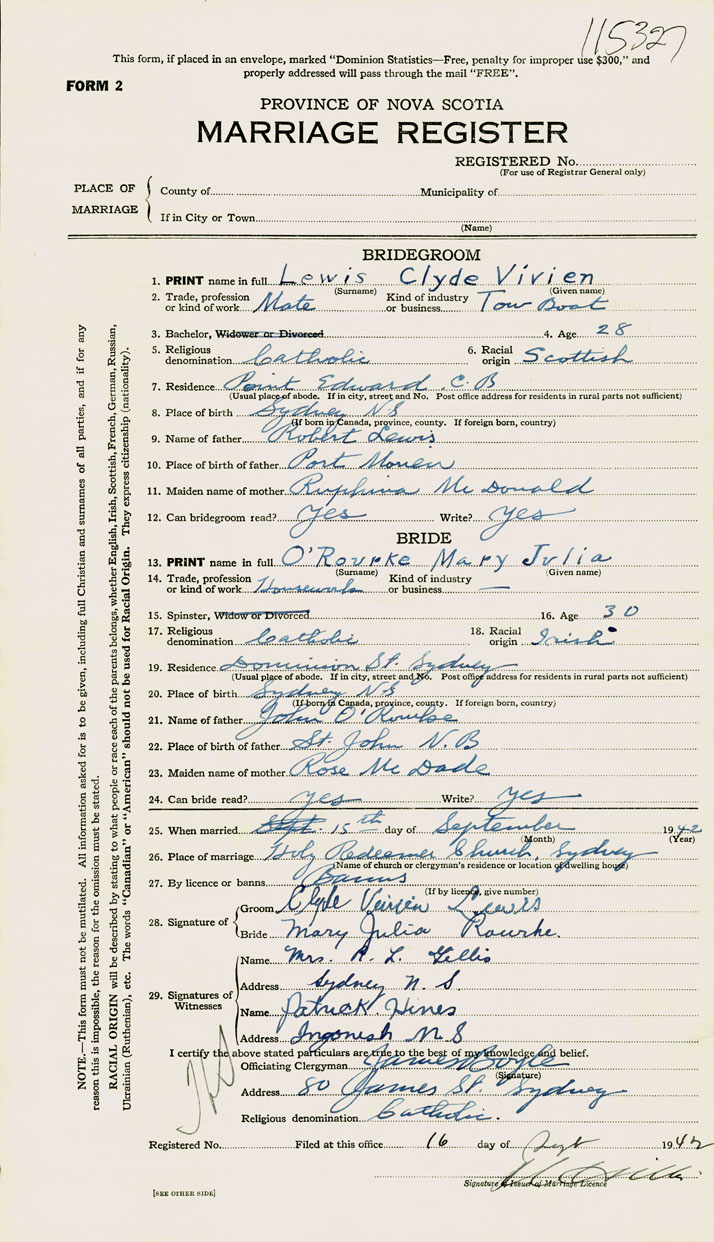 115327
This form, if placed in an envelope, marked "Dominion Statistics—Free, penalty for improper use $300," and
properly addressed will pass through the mail "FREE".
FORM 2
PROVINCE OF NOVA SCOTIA
MARRIAGE REGISTER
REGISTERED No.
(For use of Registrar General only)
PLACE OF MARRIAGE
County of Municipality of
If in City or Town
(Name)
BRIDEGROOM
1. PRINT name in full Lewis Clyde Vivien
(Surname) (Given name)
2. Trade, profession or kind of work Mate Kind of industry or business Tow Boat
3. Bachelor, Widower or Divorced 4. Age 28
5. Religious denomination Catholic 6. Racial origin Scottish
7. Residence Point Edward C.B
(Usual place of abode. If in city, street and No. Post office address for residents in rural parts not sufficient)
8. Place of birth Sydney NS
(If born in Canada, province, county. If foreign born, country)
9. Name of father Robert Lewis
10. Place of birth of father Port Morien
11. Maiden name of mother Ruphina Mc Donald
12. Can bridegroom read? yes Write? yes
BRIDE
13. PRINT name in full O'Rourke Mary Julia
(Surname) (Given name)
14. Trade, profession or kind of work Housework Kind of industry or business —
15. Spinster, Widow or Divorced 16. Age 30
17. Religious denomination Catholic 18. Racial origin Irish
19. Residence Dominion St. Sydney
(Usual place of abode. If in city, street and No. Post office address for residents in rural parts not sufficient)
20. Place of birth Sydney NS
(If born in Canada, province, county. If foreign born, country)
21. Name of father John O'Rourke
22. Place of birth of father St. John N.B
23. Maiden name of mother Rose Mc Dade
24. Can bride read? yes Write? yes
25. When married Sept. 15th day of September 1942
(Month) (Year)
26. Place of marriage Holy Redeemer Church, Sydney
(Name of church or clergyman's residence or location of dwelling house)
27. By licence or banns Banns
(If by licence, give number)
28. Signature of
Groom Clyde Vivien Lewis
Bride Mary Julia Rourke.
29. Signatures of Witnesses
Name Mrs. A. L. Gillis
Address Sydney N.S.
Name Patrick Hines
Address Ingonish N S
I certify the above stated particulars are true to the best of my knowledge and belief.
Officiating Clergyman James Boyle
(Signature)
Address 80 James St. Sydney
Religious denomination Catholic.
Registered No. Filed at this office 16 day of Sept 1942
Signature of Issuer of Marriage Licence
[SEE OTHER SIDE]
NOTE.—This form must not be mutilated. All information asked for is to be given, including full Christian and surnames of all parties, and if for any
reason this is impossible, the reason for the omission must be stated.
RACIAL ORIGIN will be described by stating to what people or race each of the parents belongs, whether English, Irish, Scottish, French, German, Russian,
Ukrainian (Ruthenian), etc. The words "Canadian" or "American" should not be used for Racial Origin. They express citizenship (nationality).